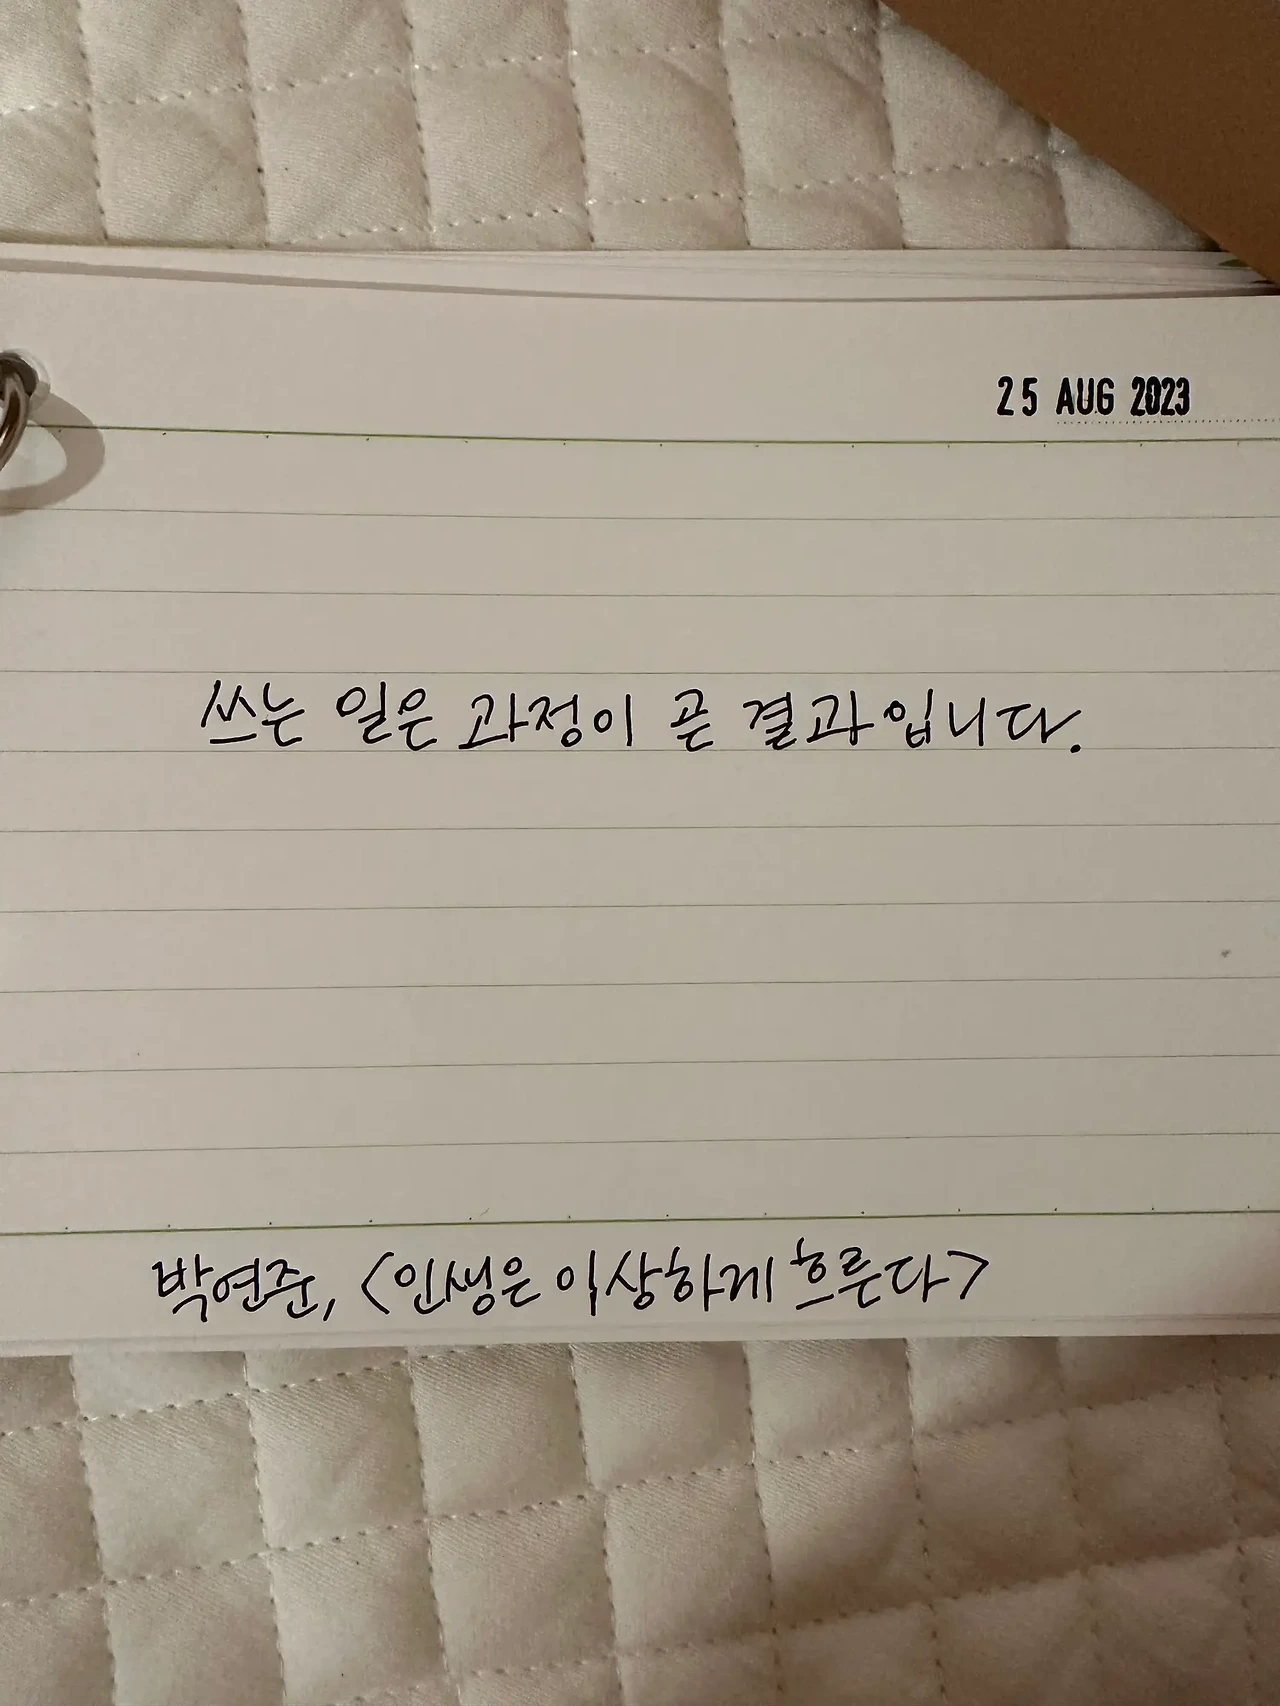 25 AUG 2023
쓰는 일은 과정이 곧 결과입니다.
박연준, <인생은 이상하게 흐른다>